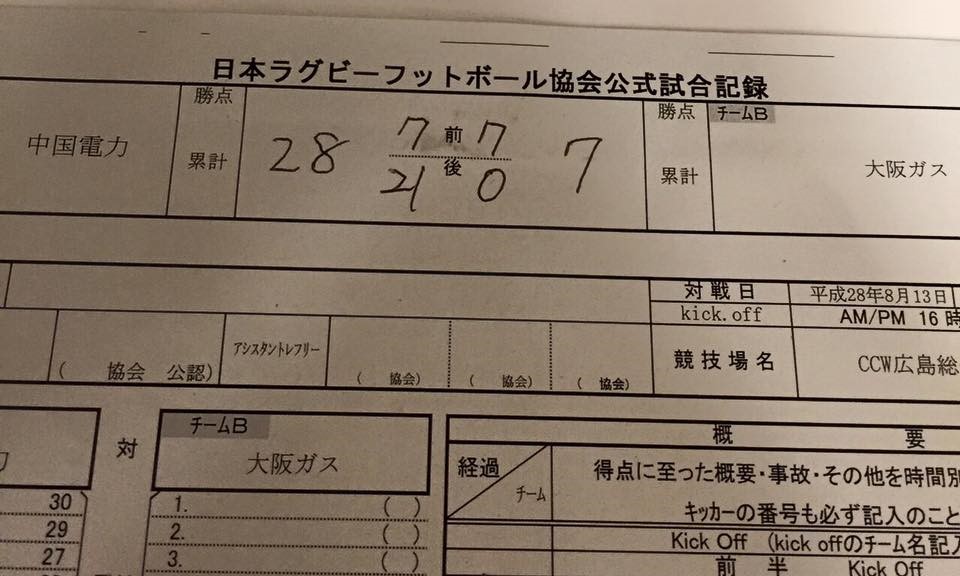 日本ラグビーフットボール協会公式試合記録
中国電力
勝点
累計
28 7 前 7 7
21 後 0
勝点
累計
チームB
大阪ガス
対戦日 平成28年8月13日
kick.off AM/PM 16時
( 協会 公認) アシスタントレフリー ( 協会) ( 協会) ( 協会)
競技場名 CCW広島総
対
チームB
大阪ガス
30 1. ( )
29 2. ( )
27 3. ( )
概 要
経過 チーム
得点に至った概要・事故・その他を時間別
キッカーの番号も必ず記入のこと
Kick Off (kick offのチーム名記入
前 半 Kick Off